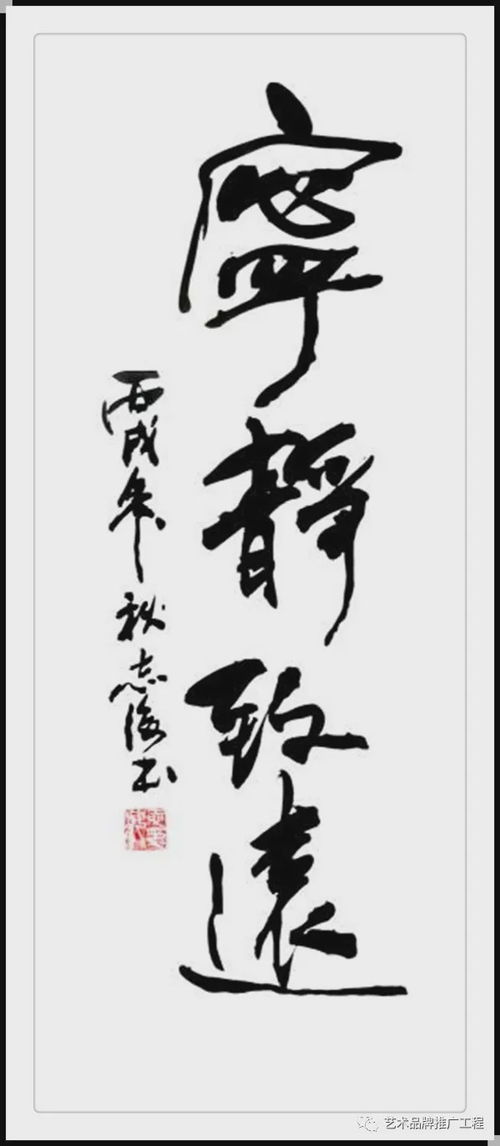 寧靜致遠
丙戌年秋志海书
艺术品牌推广工程